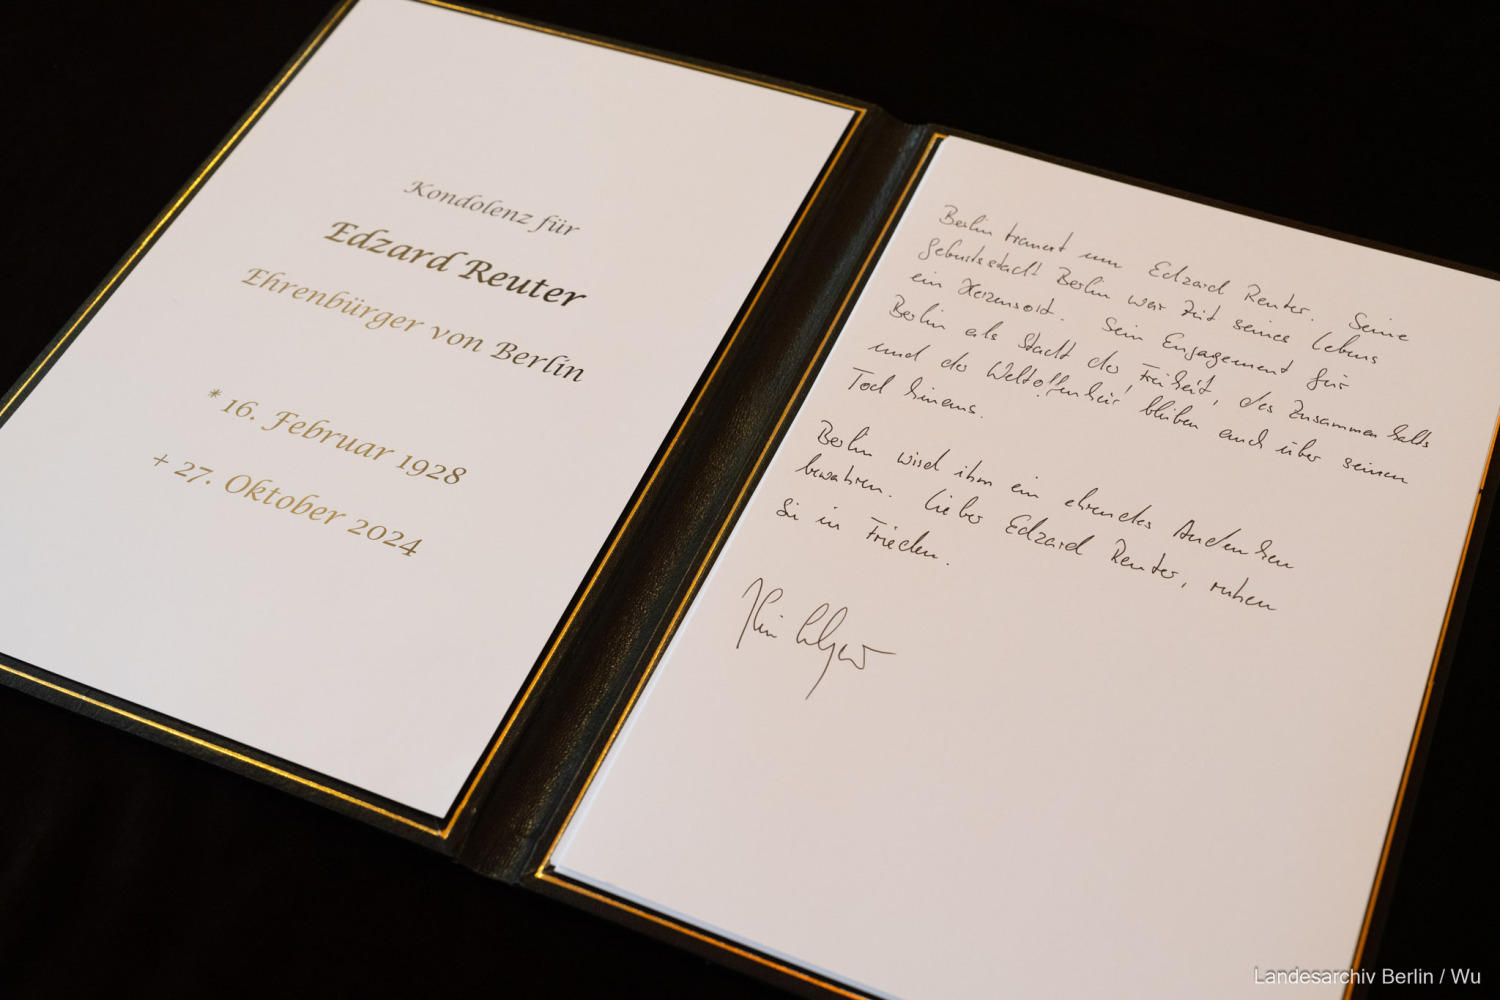 Kondolenz für
Edzard Reuter
Ehrenbürger von Berlin
* 16. Februar 1928
+ 27. Oktober 2024
Berlin trauert um Edzard Reuter. Seine
Geburtsstadt Berlin war Zeit seines Lebens
ein Herzensort. Sein Engagement für
Berlin als Stadt der Freiheit, des Zusammenhalts
und der Weltoffenheit bleiben auch über seinen
Tod hinaus.
Berlin wird ihm ein ehrendes Andenken
bewahren. Lieber Edzard Reuter, ruhen
Sie in Frieden.
Landesarchiv Berlin / Wu